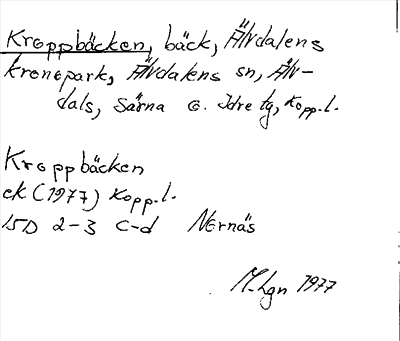 Kroppbäcken, bäck, Älvdalens
kronopark, Älvdalens sn, Älv-
dals, Särna o. Idre tg, Kopp.l.
Kroppbäcken
ek (1977) Kopp.l.
15D 2-3 c-d Nornäs
M-hgn 1977